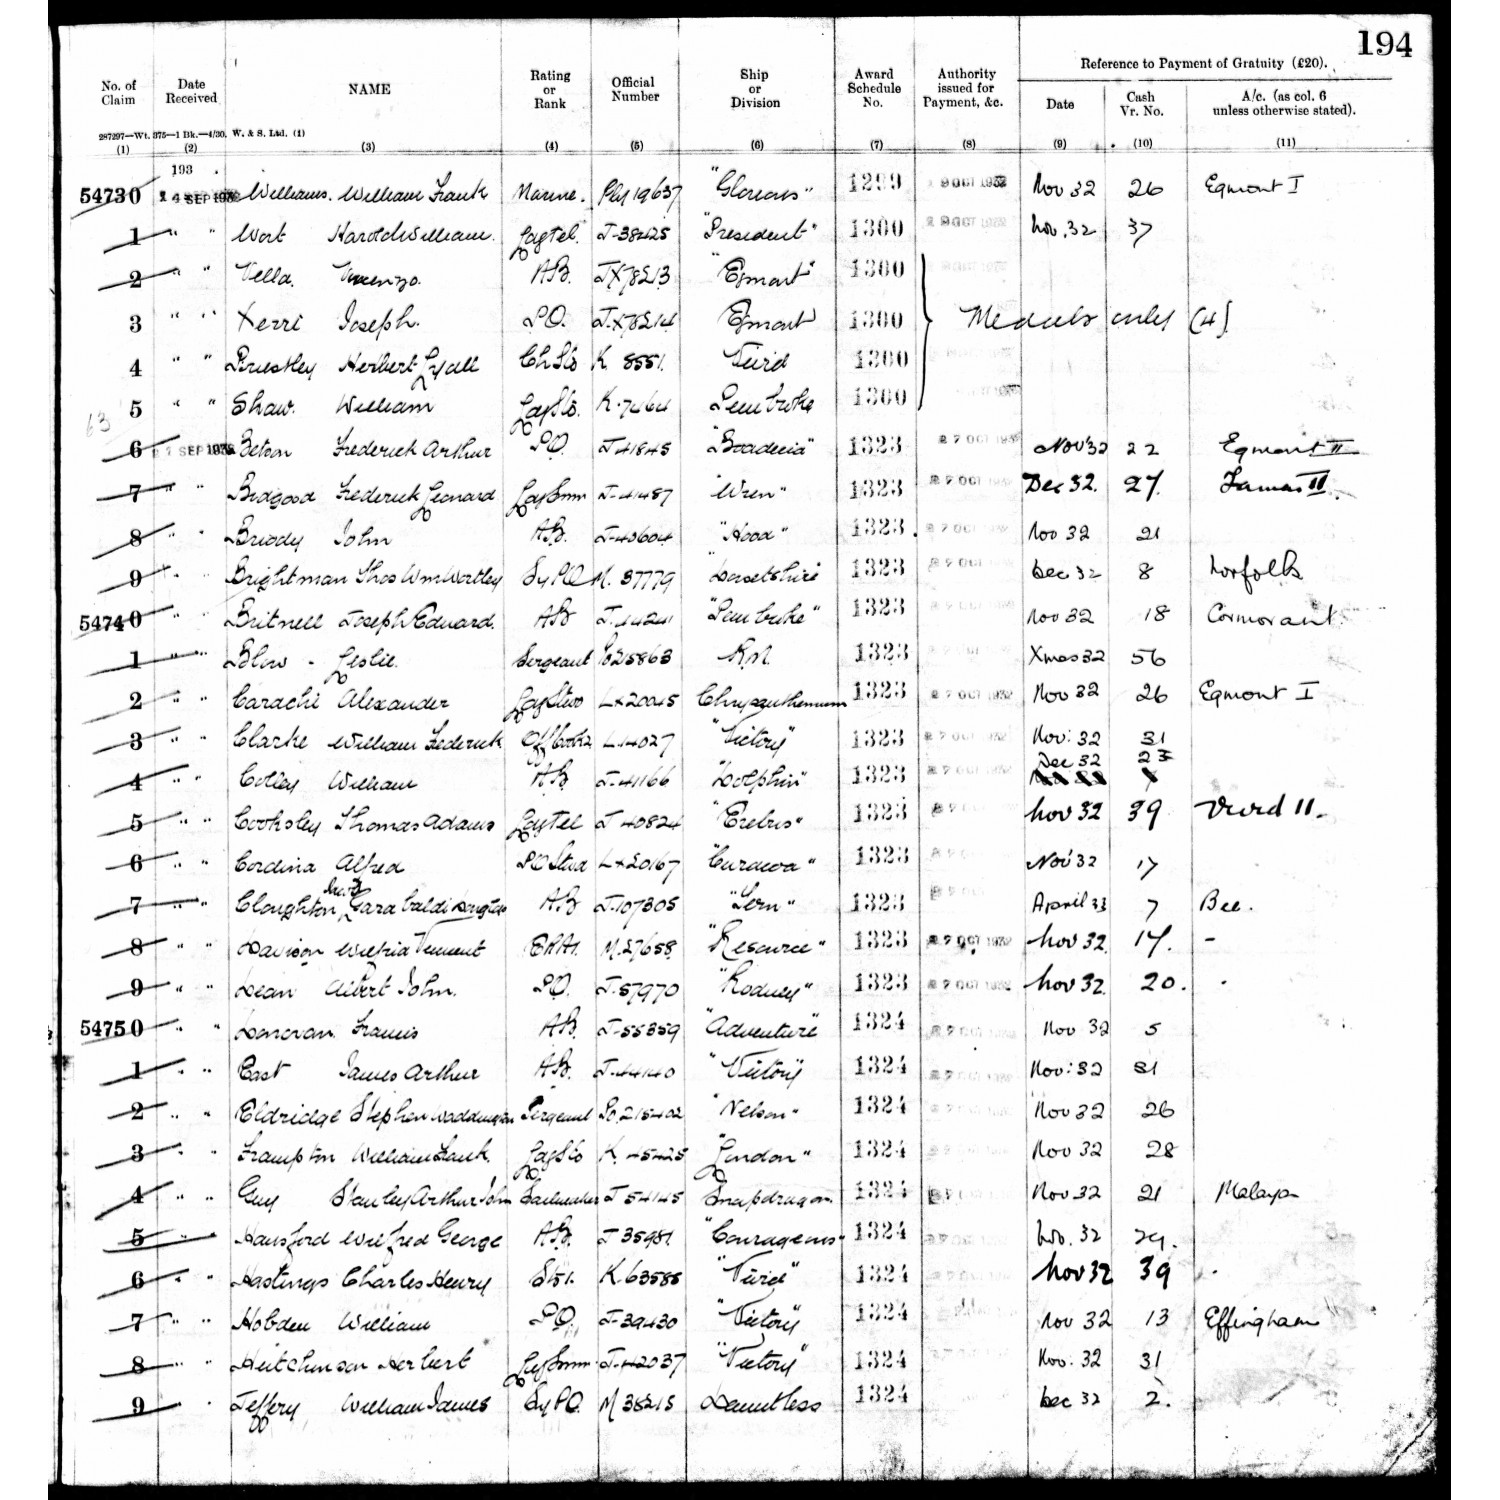 194
Reference to Payment of Gratuity (£20).
No. of Claim Date Received NAME Rating or Rank Official Number Ship or Division Award Schedule No. Authority issued for Payment, &c. Date Cash Vr. No. A/c. (as col. 6 unless otherwise stated).
287297—Wt. 375—1 Bk.—4/30. W. & S. Ltd. (1)
(1) (2) (3) (4) (5) (6) (7) (8) (9) (10) (11)
193
54730 14 SEP 1932 Williams. William Frank Marine. Ply 19637 "Glorious" 1299 19 OCT 1932 Nov 32 26 Egmont I
1 " " Wort Harold William. Lagtel. J-38425 "President" 1300 29 OCT 1932 Nov. 32 37
2 " " Vella. AB. JX78213 "Egmont" 1300
3 " " Xerri Joseph. P.O. J.X78214 Egmont 1300 Medals only (4)
4 " " Priestley Herbert Lyall Ch Sto K 8551. Vivid 1300
5 " " Shaw. William Lag Sto. K.7464 Pembroke 1300
63
6 SEP 1932 Frederick Arthur P.O. J-41845 "Boadicea" 1323 27 OCT 1932 Nov 32 22 Egmont II
7 " " Bidgood Frederick Leonard Lag Smn J-41487 "Wren" 1323 27 OCT 1932 Dec 32. 27. II
8 " " Briody John AB. J-40604 "Hood" 1323. 27 OCT 1932 Nov 32 21
9 " " Brightman Thos Wm Wortley Sy PO M. 37779 "Dorsetshire 1323 27 OCT Dec 32 8 Norfolk
54740 " " Britnell Joseph Edward. AB J-44241 "Pembroke" 1323 27 OCT Nov 32 18 Cormorant
1 " " Blow - Leslie. Sergeant Po25863 R.M. 1323 Xmas 32 56
2 " " Carachi Alexander Lag Stwd LX20045 Chrysanthemum 1323 27 OCT 1932 Nov 32 26 Egmont I
3 " " Clarke William Frederick Off Cook2 L14027 "Victory" 1323 27 OCT 1932 Nov: 32 31
4 " " Colley William AB J-41166 "Dolphin" 1323 27 OCT 1932 Dec 32 23
5 " " Cooksley Thomas Adams Lag Tel J 40824 "Erebus" 1323 Nov 32 39 Vivid II.
6 " " Cordina Alfred PO Stwd LX20167 "Curacoa" 1323 Nov 32 17
7 " " Cloughton, Garabaldi Douglas AB J-107305 "Tern" 1323 April 33 7 Bee.
8 " " Davison Wilfrid Vincent ERA1. M.27658 "Resource" 1323 27 OCT 1932 Nov 32. 17. -
9 " " Dean Albert John. P.O. J-57970 "Rodney" 1323 27 OCT 1932 Nov 32. 20.
54750 " " Donovan Francis AB. J-55359 "Adventure" 1324 27 OCT 1932 Nov 32 5
1 " " East James Arthur AB. J-44140 "Victory" 1324 27 OCT 1932 Nov: 32 31
2 " " Eldridge Stephen Waddington Sergeant Po.215402 "Nelson" 1324 Nov 32 26
3 " " Frampton William Frank. Lag Sto K. 45425 "London" 1324 Nov 32 28
4 " " Guy Stanley Arthur John Sailmaker J 54145 Snapdragon 1324 Nov 32 21 Malaya
5 " " Hansford Wilfred George AB. J 35981 "Courageous" 1324 27 OCT 1932 Nov. 32 29.
6 " " Hastings Charles Henry Sto1. K 63585 "Vivid" 1324 Nov 32 39
7 " " Hobden William P.O. J-39430 "Victory" 1324 Nov 32 13 Effingham
8 " " Hutchinson Herbert Lag Smn J-42037 "Victory" 1324 Nov: 32 31
9 " Jeffery William James Sy PO. M 38215 Dauntless 1324 Dec 32 2.